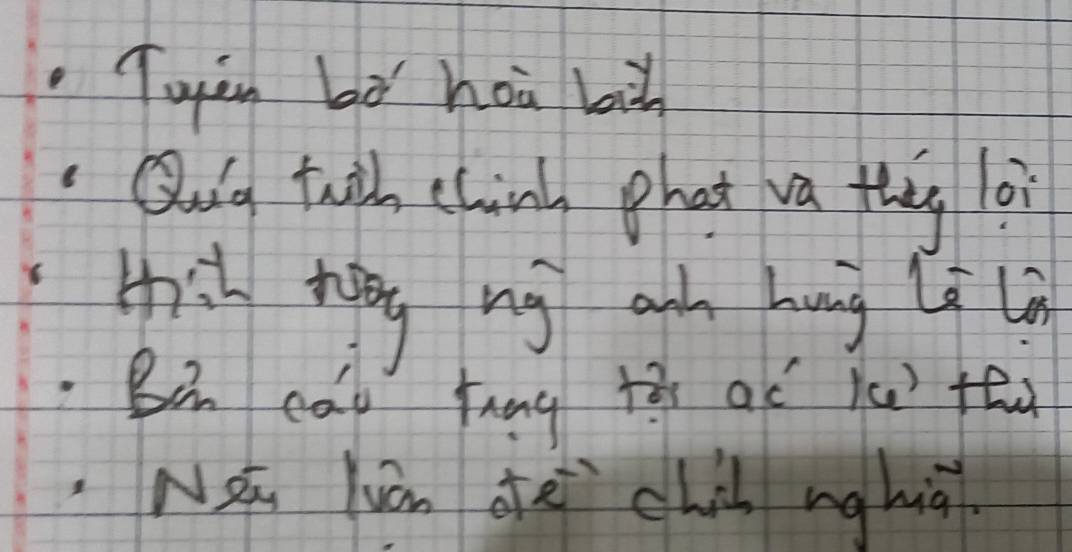 • Tuyên bố hoà bình
• Quá trình chinh phạt và thắng lợi
• Hình tượng ng~ anh hùng Lê Lợi
• Bản cáo trạng tội ác kẻ thù
• Nêu luận đề chính nghĩa.